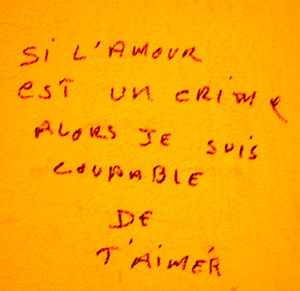 SI L'AMOUR
EST UN CRIME
ALORS JE SUIS
COUPABLE
DE
T'AIMÉR